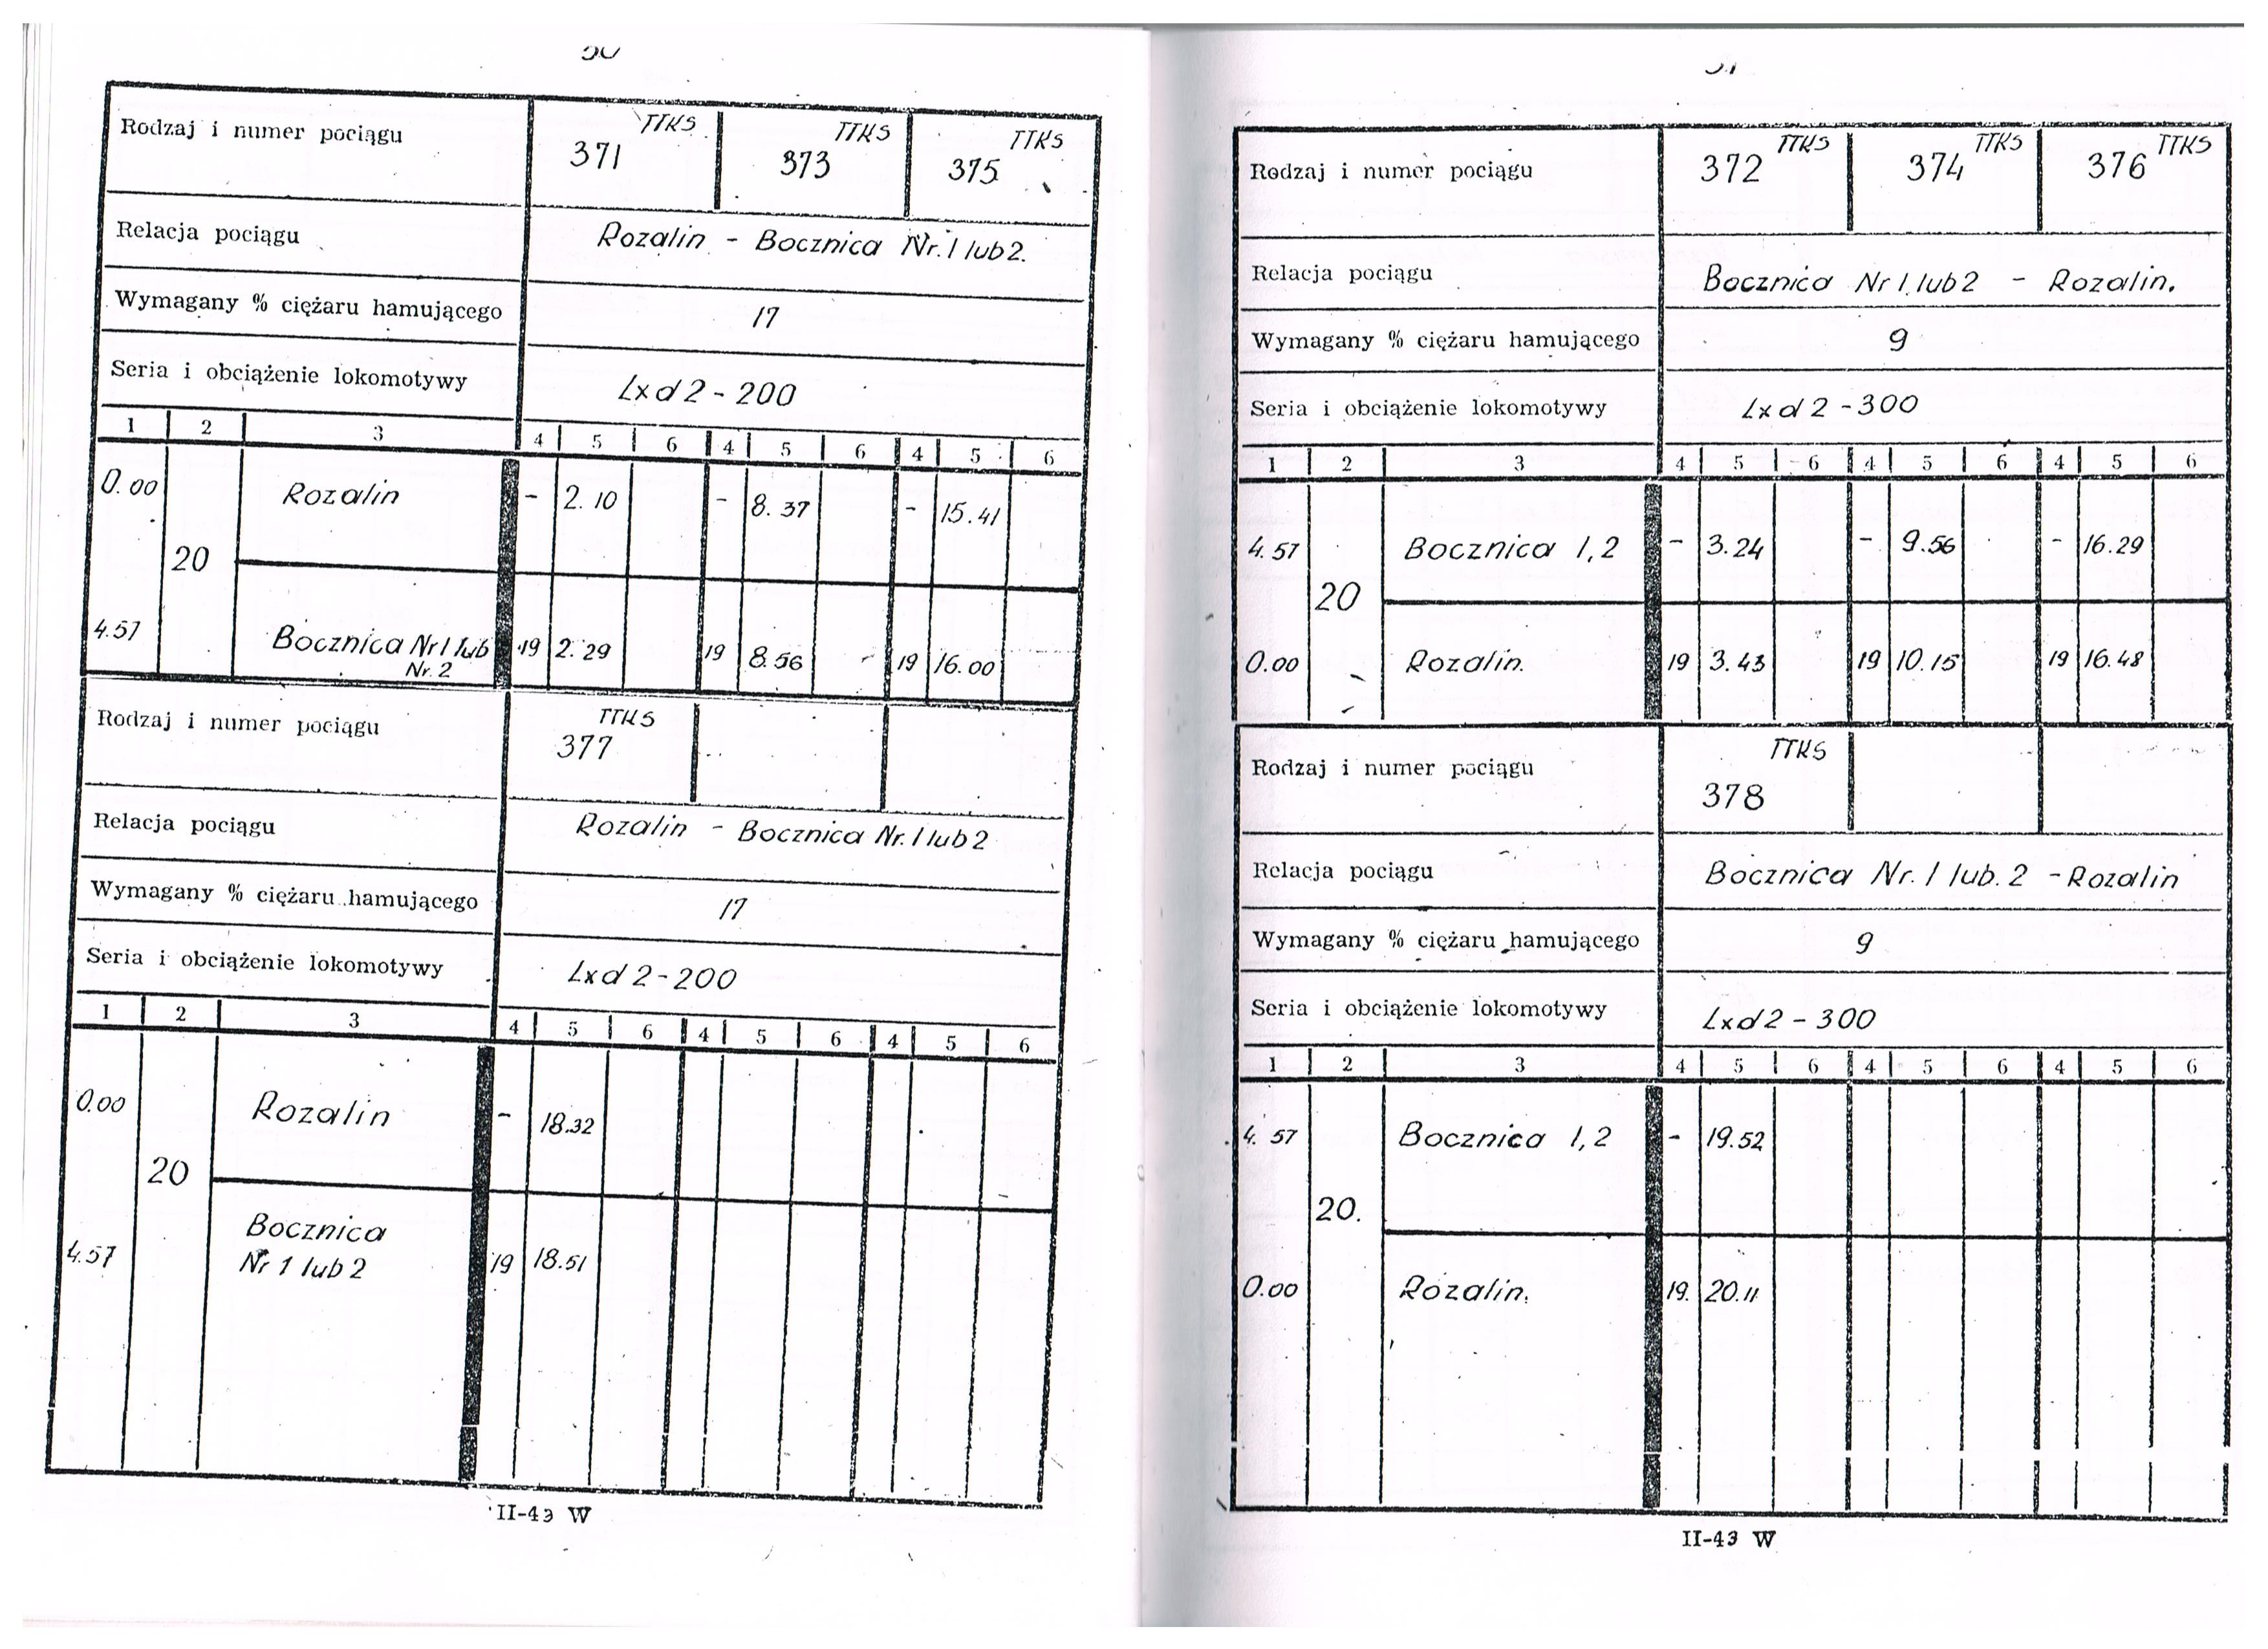 TTKS TTKS TTKS
Rodzaj i numer pociągu 371 373 375
Relacja pociągu Rozalin - Bocznica Nr. 1 lub 2.
Wymagany % ciężaru hamującego 17
Seria i obciążenie lokomotywy Lxd2 - 200
1 2 3 4 5 6 4 5 6 4 5 6
0.00 Rozalin - 2.10 - 8.37 - 15.41
20
4.57 Bocznica Nr 1 lub 19 2.29 19 8.56 19 16.00
Nr. 2
TTKS
Rodzaj i numer pociągu 377
Relacja pociągu Rozalin - Bocznica Nr. 1 lub 2
Wymagany % ciężaru hamującego 17
Seria i obciążenie lokomotywy Lxd2 - 200
1 2 3 4 5 6 4 5 6 4 5 6
0.00 Rozalin - 18.32
20
Bocznica
4.57 Nr 1 lub 2 19 18.51
II-43 W
TTKS TTKS TTKS
Rodzaj i numer pociągu 372 374 376
Relacja pociągu Bocznica Nr 1. lub 2 - Rozalin.
Wymagany % ciężaru hamującego 9
Seria i obciążenie lokomotywy Lxd2 - 300
1 2 3 4 5 6 4 5 6 4 5 6
4.57 Bocznica 1,2 - 3.24 - 9.56 - 16.29
20
0.00 Rozalin. 19 3.43 19 10.15 19 16.48
TTKS
Rodzaj i numer pociągu
378
Relacja pociągu Bocznica Nr. 1 lub. 2 - Rozalin
Wymagany % ciężaru hamującego 9
Seria i obciążenie lokomotywy Lxd2 - 300
1 2 3 4 5 6 4 5 6 4 5 6
4.57 Bocznica 1,2 - 19.52
20.
0.00 Rozalin. 19. 20.11
II-43 W